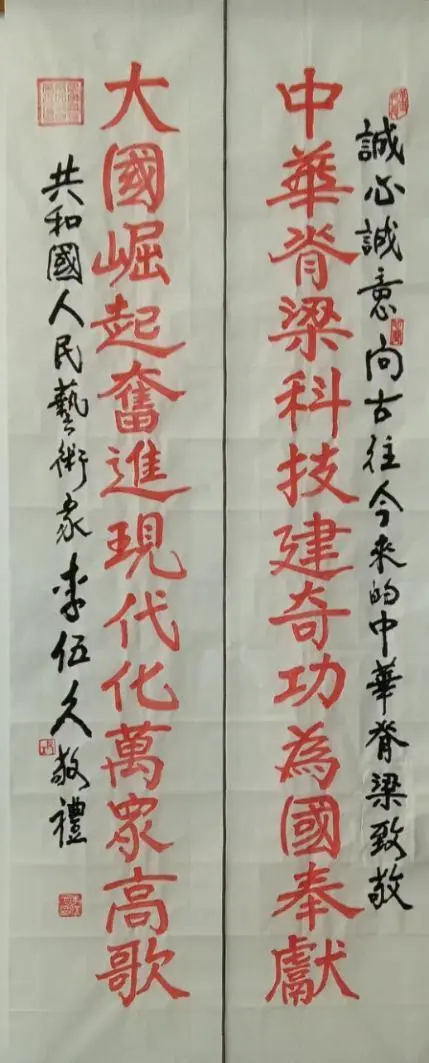 誠心誠意向古往今來的中華脊梁致敬
中華脊梁科技建奇功為國奉獻
大國崛起奮進現代化萬眾高歌
共和國人民藝術家李伍久敬禮